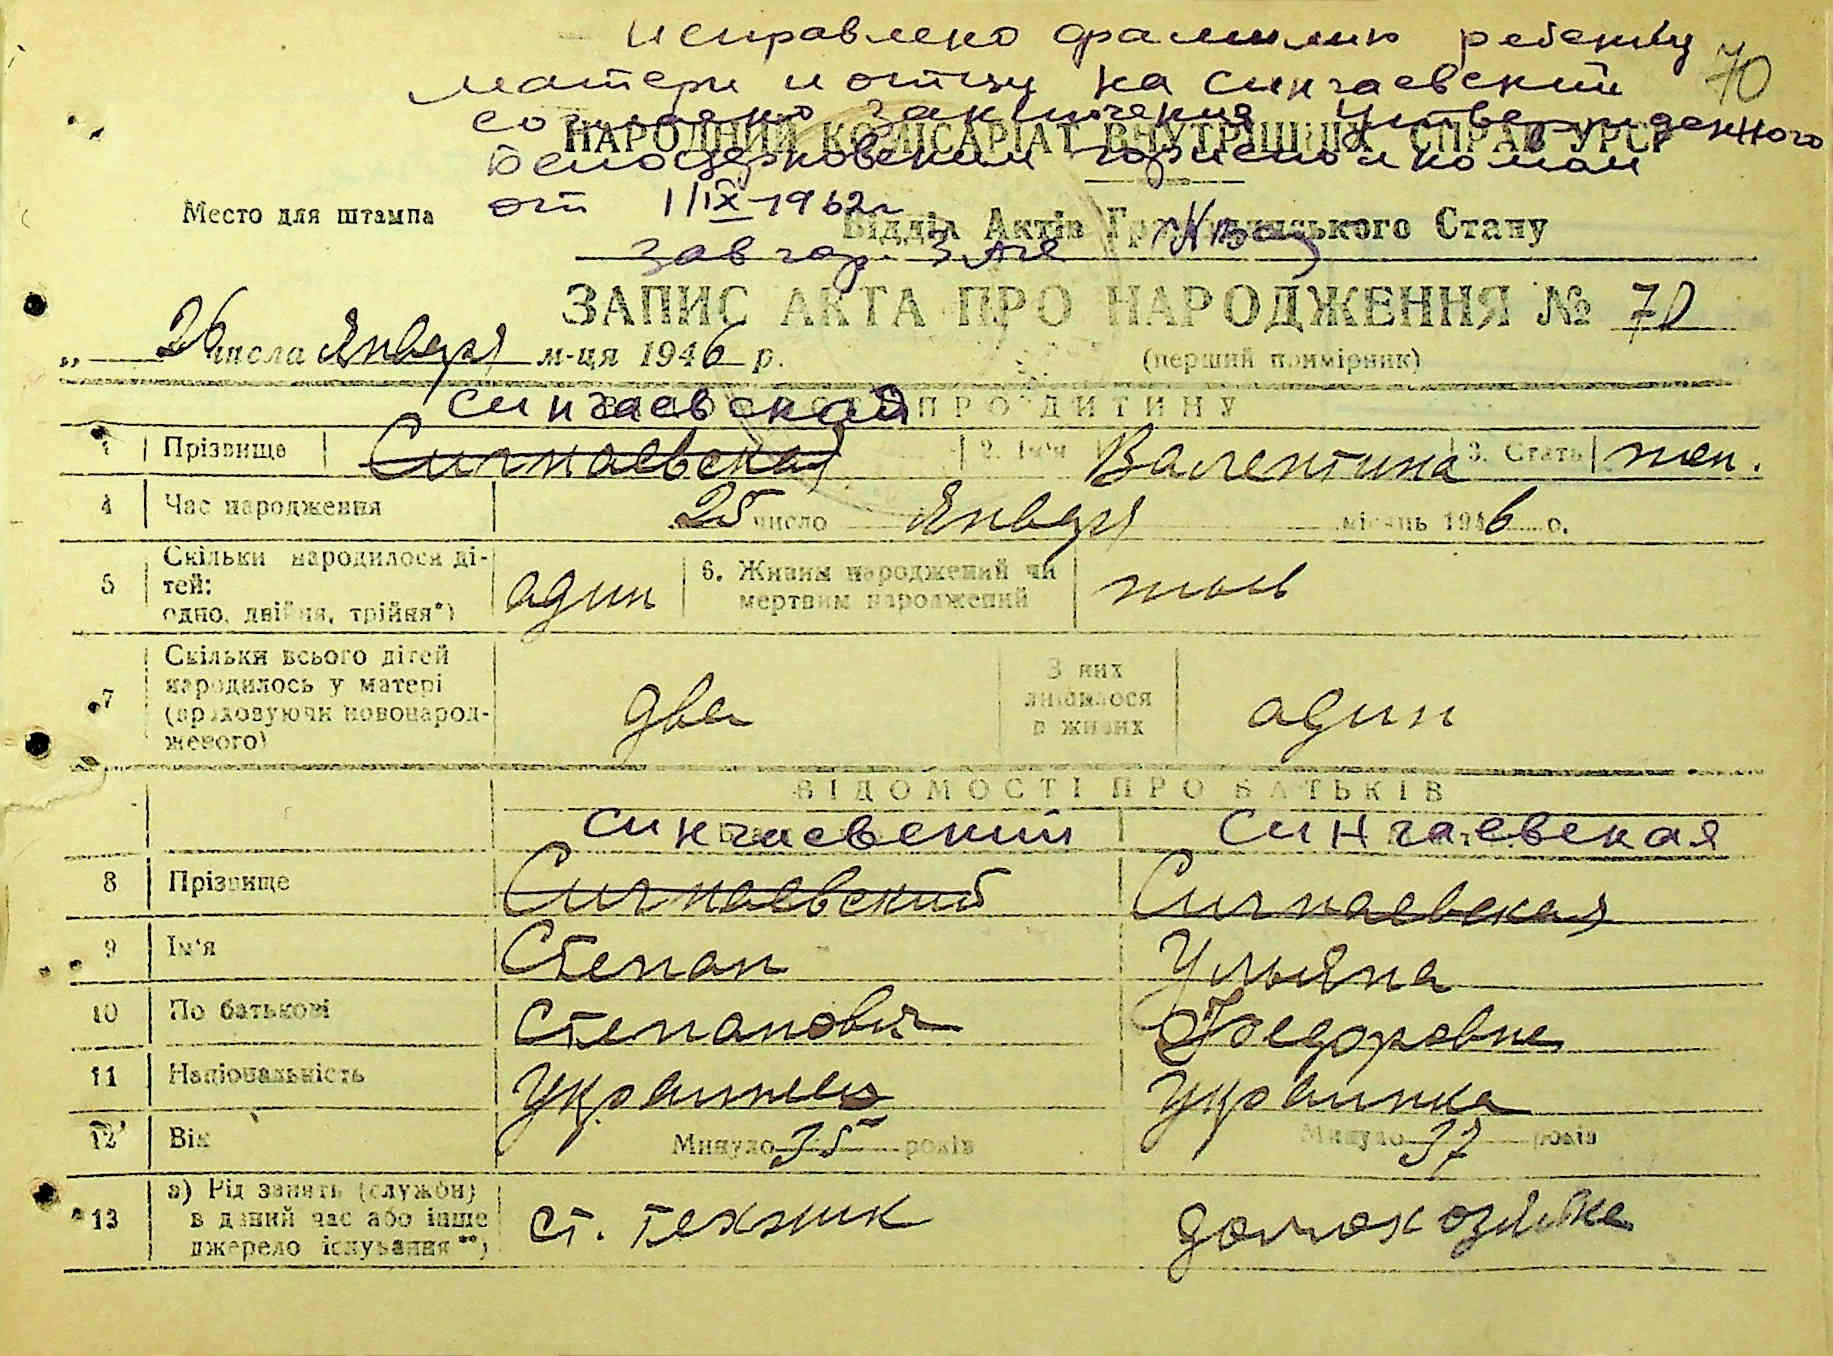 Исправлено фамилию ребенку
70
матери и отцу на Сингаевский
согласно заключения утвержденного
НАРОДНИЙ КОМІСАРІАТ ВНУТРІШНІХ СПРАВ УРСР
Белоцерковским горисполкомом
Место для штампа
от 1/IX-1962г
Відділ Актів Громадянського Стану
Зав гор. ЗАГС
ЗАПИС АКТА ПРО НАРОДЖЕННЯ № 70
„ 26 числа Января м-ця 1946 р.
(перший примірник)
Сингаевская
ВІДОМОСТІ ПРО ДИТИНУ
1 Прізвище Сигнаевская 2. Ім'я Валентина 3. Стать жен.
4 Час народження 25 число Января місяць 1946 р.
5 Скільки народилося ді-
тей:
одно, двійня, трійня*)
один
6. Живим народжений чи
мертвим народжений
7 Скільки всього дітей
народилось у матері
(враховуючи новонарод-
женого)
два
З них
лишилося
в живих
один
ВІДОМОСТІ ПРО БАТЬКІВ
Сингаевский Сингаевская
8 Прізвище Сигнаевский Сигнаевская
9 Ім'я Степан Ульяна
10 По батькові Степанович Федоровна
11 Національність Украинец Украинка
12 Вік Минуло 35 років Минуло 37 років
13 а) Рід занять (служби)
в даний час або інше
джерело існування**)
ст. техник домохозяйка